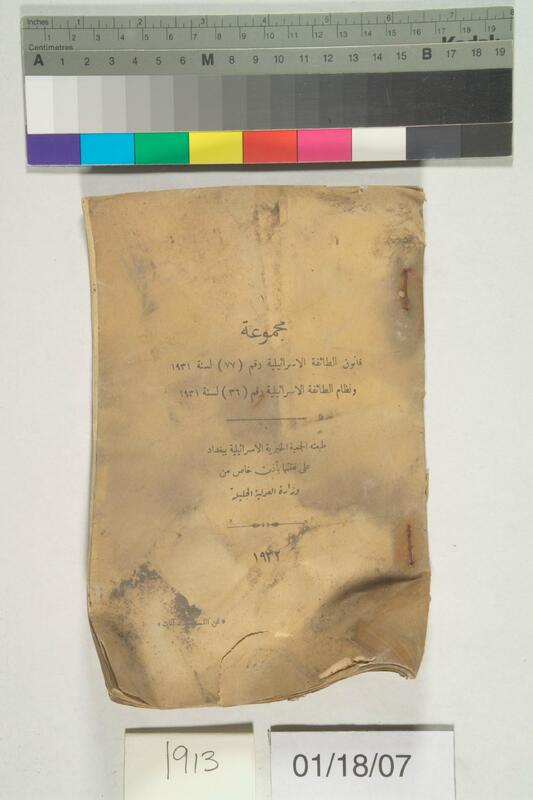 Inches 1 2 3 4 5 6 7 8
1 2 3 4 5 6 7 8 9 10 11 12 13 14 15 16 17 18 19
Centimetres
A 1 2 3 4 5 6 M 8 9 10 11 12 13 14 15 B 17 18 19
مجموعة
قانون الطائفة الاسرائيلية رقم (٧٧) لسنة ١٩٣١
ونظام الطائفة الاسرائيلية رقم (٣٦) لسنة ١٩٣١
طبعته الجمعية الخيرية الاسرائيلية ببغداد
على نفقتها بأذن خاص من
وزارة العدلية الجليلة
١٩٣٢
1913
01/18/07